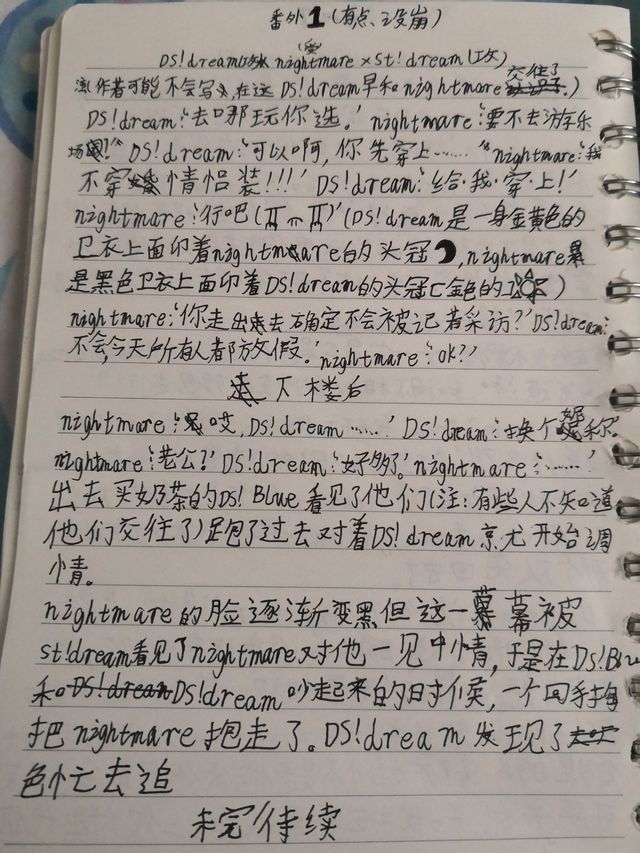 番外1(有点、没崩)
DS!dream(攻)x nightmare(受)x St!dream(攻)
(作者可能不会写,在这DS!dream早和nightmare交往了)
DS!dream:‘去哪玩你选。’nightmare:‘要不去游乐
场!’DS!dream:‘可以啊,你先穿上……’nightmare:‘我
不穿情侣装!!!’DS!dream:‘给·我·穿·上!’
nightmare:‘行吧(╥﹏╥)’(DS!dream是一身金黄色的
卫衣上面印着nightmare的头冠,nightmare
是黑色卫衣上面印着DS!dream的头冠亡金色的)
nightmare:‘你走出去确定不会被记者采访?’DS!dream:‘
不会,今天所有人都放假。’nightmare:‘ok?’
下楼后
nightmare:‘哎,DS!dream……’DS!dream:‘换个称
nightmare:‘老公?’DS!dream:‘好多了。’nightmare:‘……’
出去买奶茶的DS!Blue看见了他们(注:有些人不知道
他们交往了)跑了过去对着DS!dream就开始调
情。
nightmare的脸逐渐变黑但这一幕被
St!dream看见了nightmare对他一见中情,于是在DS!Blu
和DS!dream吵起来的时候,一个回手掏
把nightmare抱走了。DS!dream发现了
急忙去追
未完待续